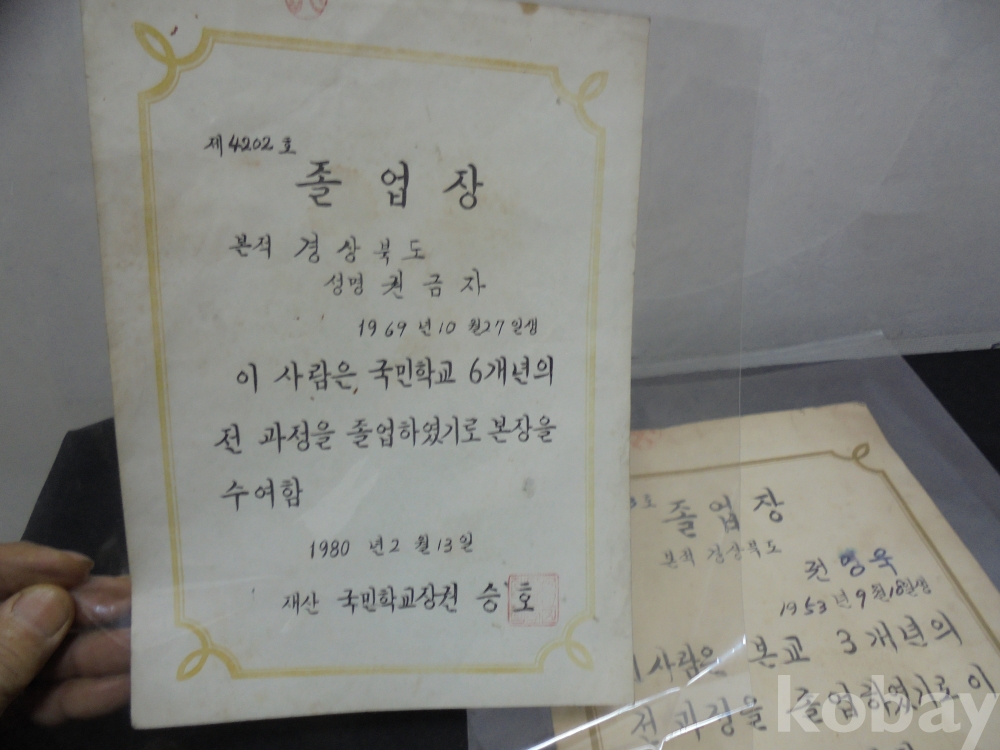 제 4202 호
졸 업 장
본적 경 상 북 도
성명 권 금 자
1969 년 10 월 27 일생
이 사람은 국민학교 6개년의
전 과정을 졸업하였기로 본장을
수여함
1980 년 2 월 13 일
재산 국민학교장 권 승 호
호
졸 업 장
본적 경상북도
영욱
1953 년 9 월 18일생
이 사람은 본교 3 개년의
전 과정을 졸업하였기로 이
kobay